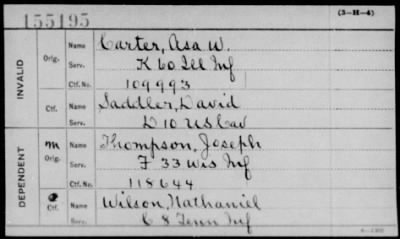 155195
(3-H-4)
INVALID
Orig.
Name Carter, Asa W.
Serv. K 60 Ill Inf
Ctf. No. 109993
Ctf.
Name Saddler, David
Serv. D 10 US Cav
DEPENDENT
m
Orig.
Name Thompson, Joseph
Serv. F 33 Wis Inf
Ctf. No. 118644
Ctf.
Name Wilson, Nathaniel
Serv. C 8 Tenn Inf